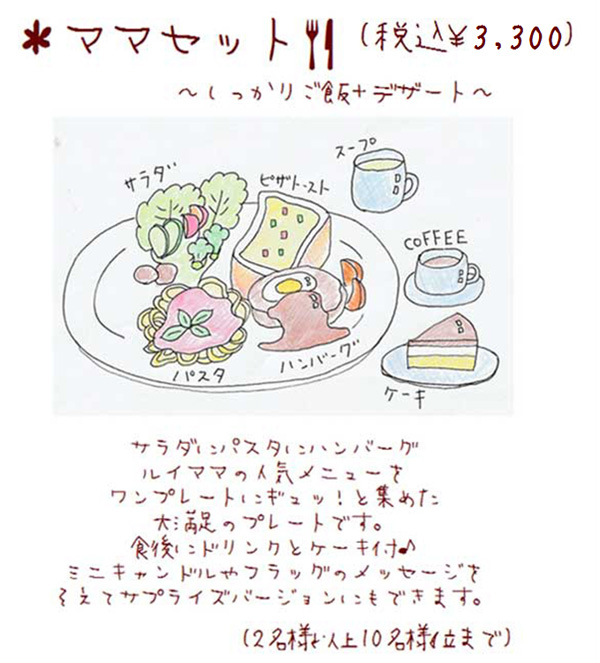 * ママセット (税込¥3,300)
～しっかりご飯+デザート～
スープ
サラダ
ピザトースト
COFFEE
パスタ
ハンバーグ
ケーキ
サラダにパスタにハンバーグ
ルイママの人気メニューを
ワンプレートにギュッ!と集めた
大満足のプレートです。
食後にドリンクとケーキ付♪
ミニキャンドルやフラッグのメッセージを
そえてサプライズバージョンにもできます。
(2名様以上10名様位まで)